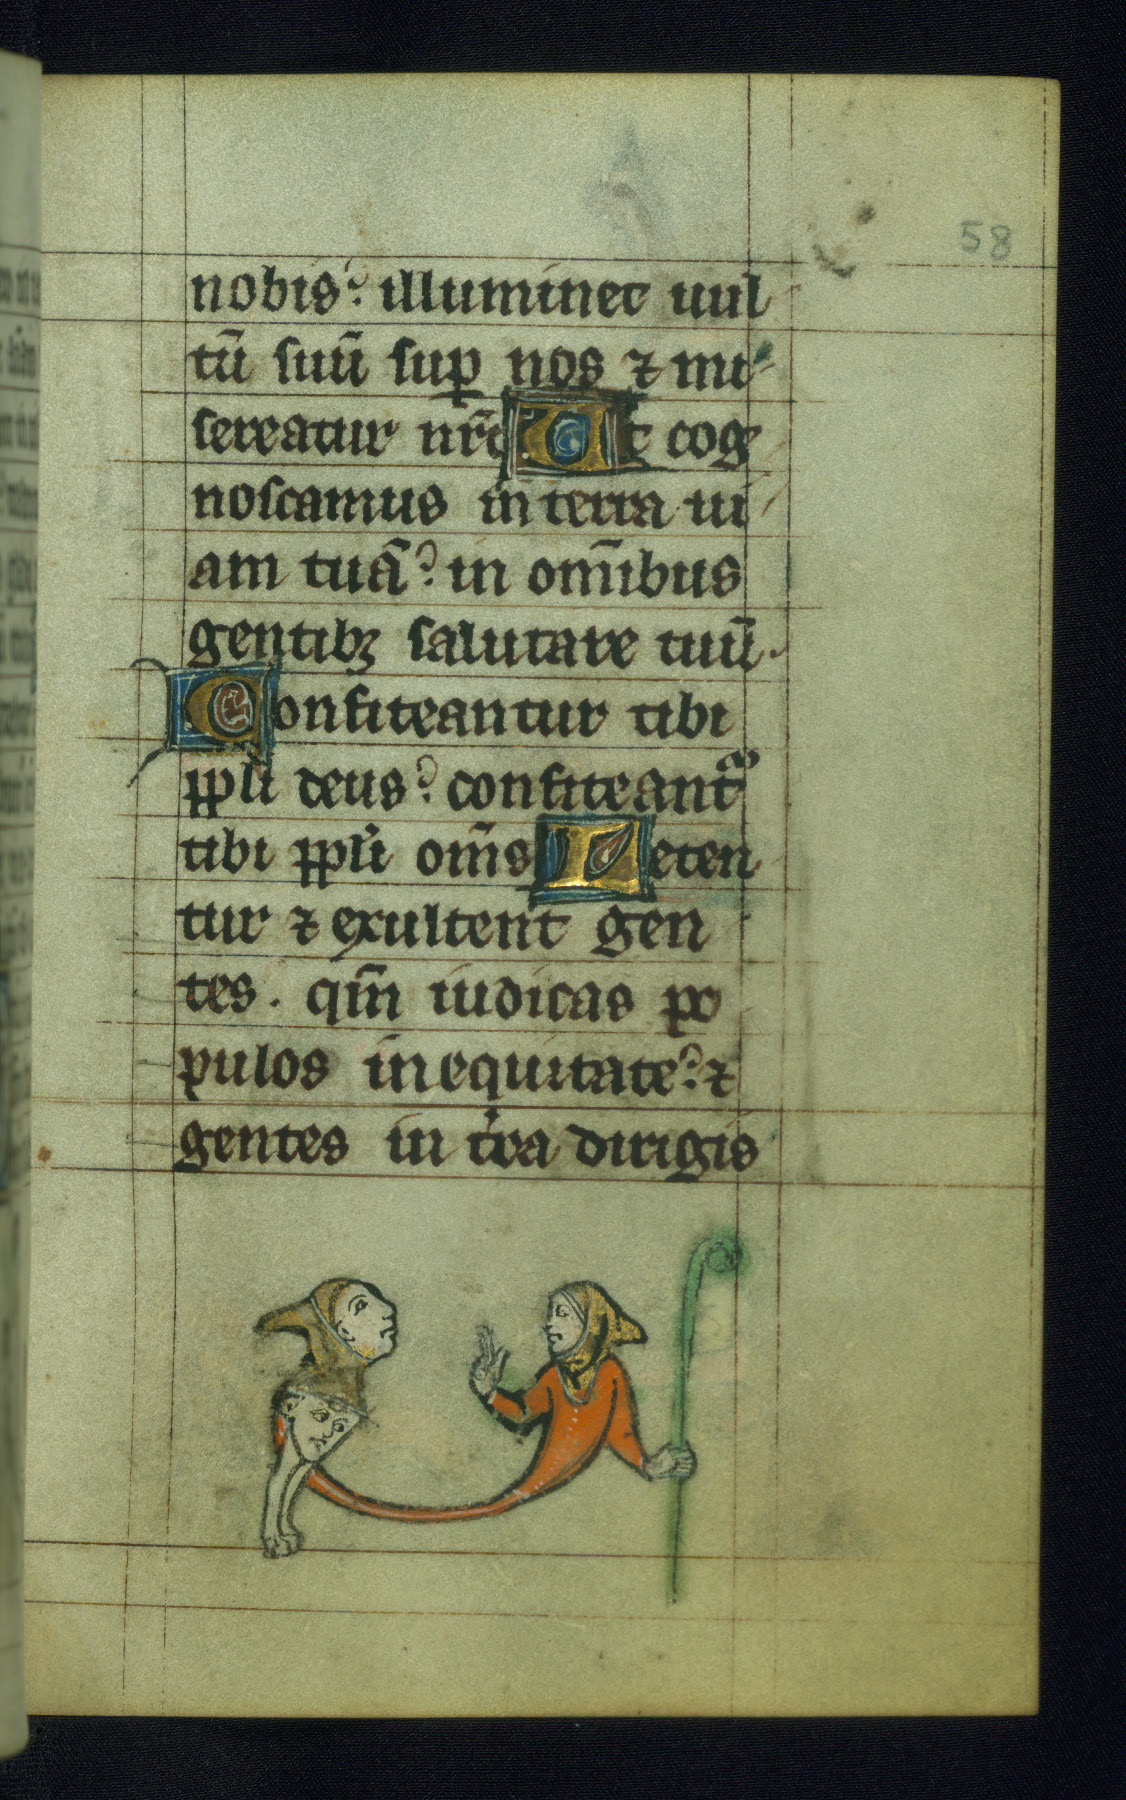 58
nobis? illuminet uul
tū suū sup nos ⁊ mi
sereatur nr̄i Ut cog
noscamus in terra ui
am tuā? in om̄ibus
gentibꝫ salutare tuū.
Confiteantur tibi
ppl'i deus? confiteant᷑
tibi ppl'i om̄s Leten
tur ⁊ exultent gen
tes. qm̄ iudicas po
pulos in equitate? ⁊
gentes in t'ra dirigis